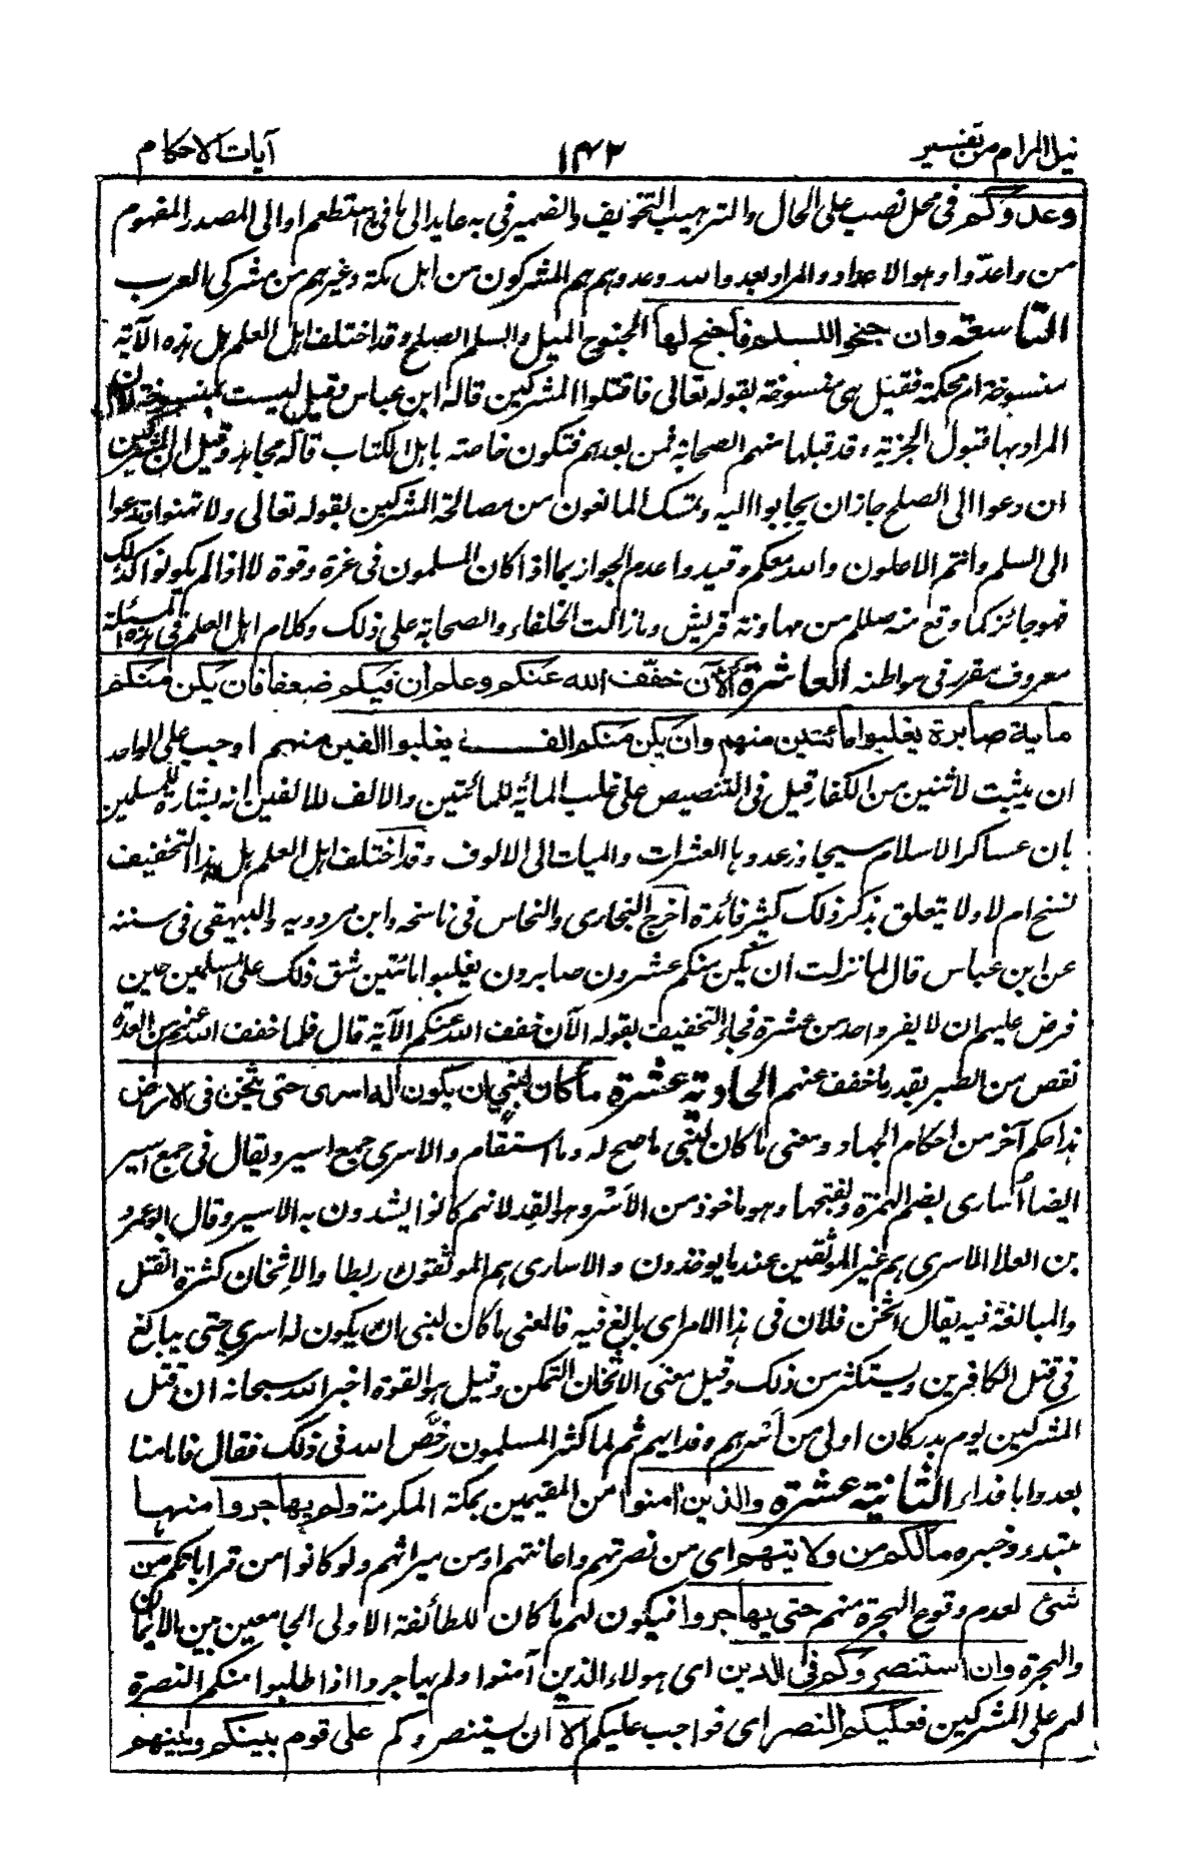 نيل المرام من تفسير ١٤٢ آيات الاحكام
وعدوكم في محل نصب على الحال والترهيب التخويف والضمير في به عايد الى ما في ما استطعم او الى المصدر المفهوم
من واعدّوا وهو الاعداد والمراد بعدو الله وعدوهم هم المشركون من اهل مكة وغيرهم من مشركى العرب
التاسعة وان جنحوا للسلم فاجنح لها الجنوح الميل والسلم الصلح وقد اختلف اهل العلم هل هذه الآية
منسوخة ام محكمة فقيل هى منسوخة بقوله تعالى فاقتلوا المشركين قاله ابن عباس وقيل ليست بمنسوخة لان
المراد بها قبول الجزية وقد قبلها منهم الصحابة فمن بعدهم فتكون خاصة باهل الكتاب قاله مجاهد وقيل ان المشركين
ان دعوا الى الصلح جاز ان يجابوا اليه وتمسك المانعون من مصالحة المشركين بقوله تعالى ولا تهنوا وتدعوا
الى السلم وانتم الاعلون والله معكم وقيدوا عدم الجواز بما اذا كان المسلمون فى عزة وقوة لا اذا لم يكونوا كذلك
فهو جائز كما وقع منه صللم من مهاونة قريش وما زالت الخلفاء والصحابة على ذلك وكلام اهل العلم فى هذه المسئلة
معروف مقرر فى مواطنه العاشرة الآن خفّف الله عنكم وعلم ان فيكم ضعفا فان يكن منكم
ماية صابرة يغلبوا مائتين منهم وان يكن منكم الف يغلبوا الفين منهم اوجب على الواحد
ان يثبت لاثنين من الكفار قيل فى التنصيص على غلب المائة للمائتين والالف للالفين انه بشارة للمسلمين
بان عساكر الاسلام سيجاوز عددها العشرات والميات الى الالوف وقد اختلف اهل العلم هل هذا التخفيف
نسخ ام لا ولا يتعلق بذكر ذلك كثير فائدة اخرج البخارى والنحاس فى ناسخه وابن مردويه والبيهقى فى سننه
عن ابن عباس قال لما نزلت ان يكن منكم عشرون صابرون يغلبوا مائتين شق ذلك على المسلمين حين
فرض عليهم ان لا يفر واحد من عشرة فجاء التخفيف بقوله الآن خفف الله عنكم الآية قال فلما خفف الله عنهم من العدة
نقص من الصبر بقدر ما خفف عنهم الحادية عشرة ما كان لنبي ان يكون له اسرى حتى يثخن فى الارض
هذا حكم آخر من احكام الجهاد ومعنى ما كان لنبى ما صح له وما استقام والاسرى جمع اسير ويقال فى جمع اسير
ايضا اُسارى بضم الهمزة وبفتحها وهو ماخوذ من الأسْر وهو القِد لانهم كانوا يشدون به الاسير وقال ابو عمرو
بن العلا الاسرى هم غير الموثقين عند ما يوخذون والاسارى هم الموثقون ربطا والاثخان كثرة القتل
والمبالغة فيه يقال اثخن فلان فى هذا الامر اى بالغ فيه فالمعنى ما كان لنبى ان يكون له اسرى حتى يبالغ
فى قتل الكافرين ويستكثر من ذلك وقيل معنى الاثخان التمكن وقيل هو القوة اخبر الله سبحانه ان قتل
المشركين يوم بدر كان اولى من اَسْرهم وفدايهم ثم لما كثر المسلمون رخَّص الله فى ذلك فقال فاما منا
بعد واما فداء الثانية عشرة والذين امنوا من المقيمين بمكة المكرمة ولم يهاجروا منها
مبتدء وخبره مالكم من ولايتهم اى من نصرتهم واعانتهم او من ميراثهم ولو كانوا من قراباتكم من
شئ لعدم وقوع الهجرة منهم حتى يهاجروا فيكون لهم ما كان للطائفة الاولى الجامعين بين الايمان
والهجرة وان استنصروكم فى الدين اى هولاء الذين آمنوا ولم يهاجروا اذا طلبوا منكم النصرة
لهم على المشركين فعليكم النصر اى فواجب عليكم الا ان يستنصروكم على قوم بينكم وبينهم